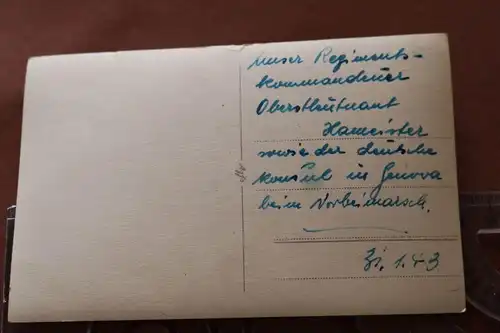 unser Regiments-
kommandeuer
Oberstleutnant
Hameister
sowie der deutsche
Konsul in Genova
beim Vorbeimarsch.
1.43